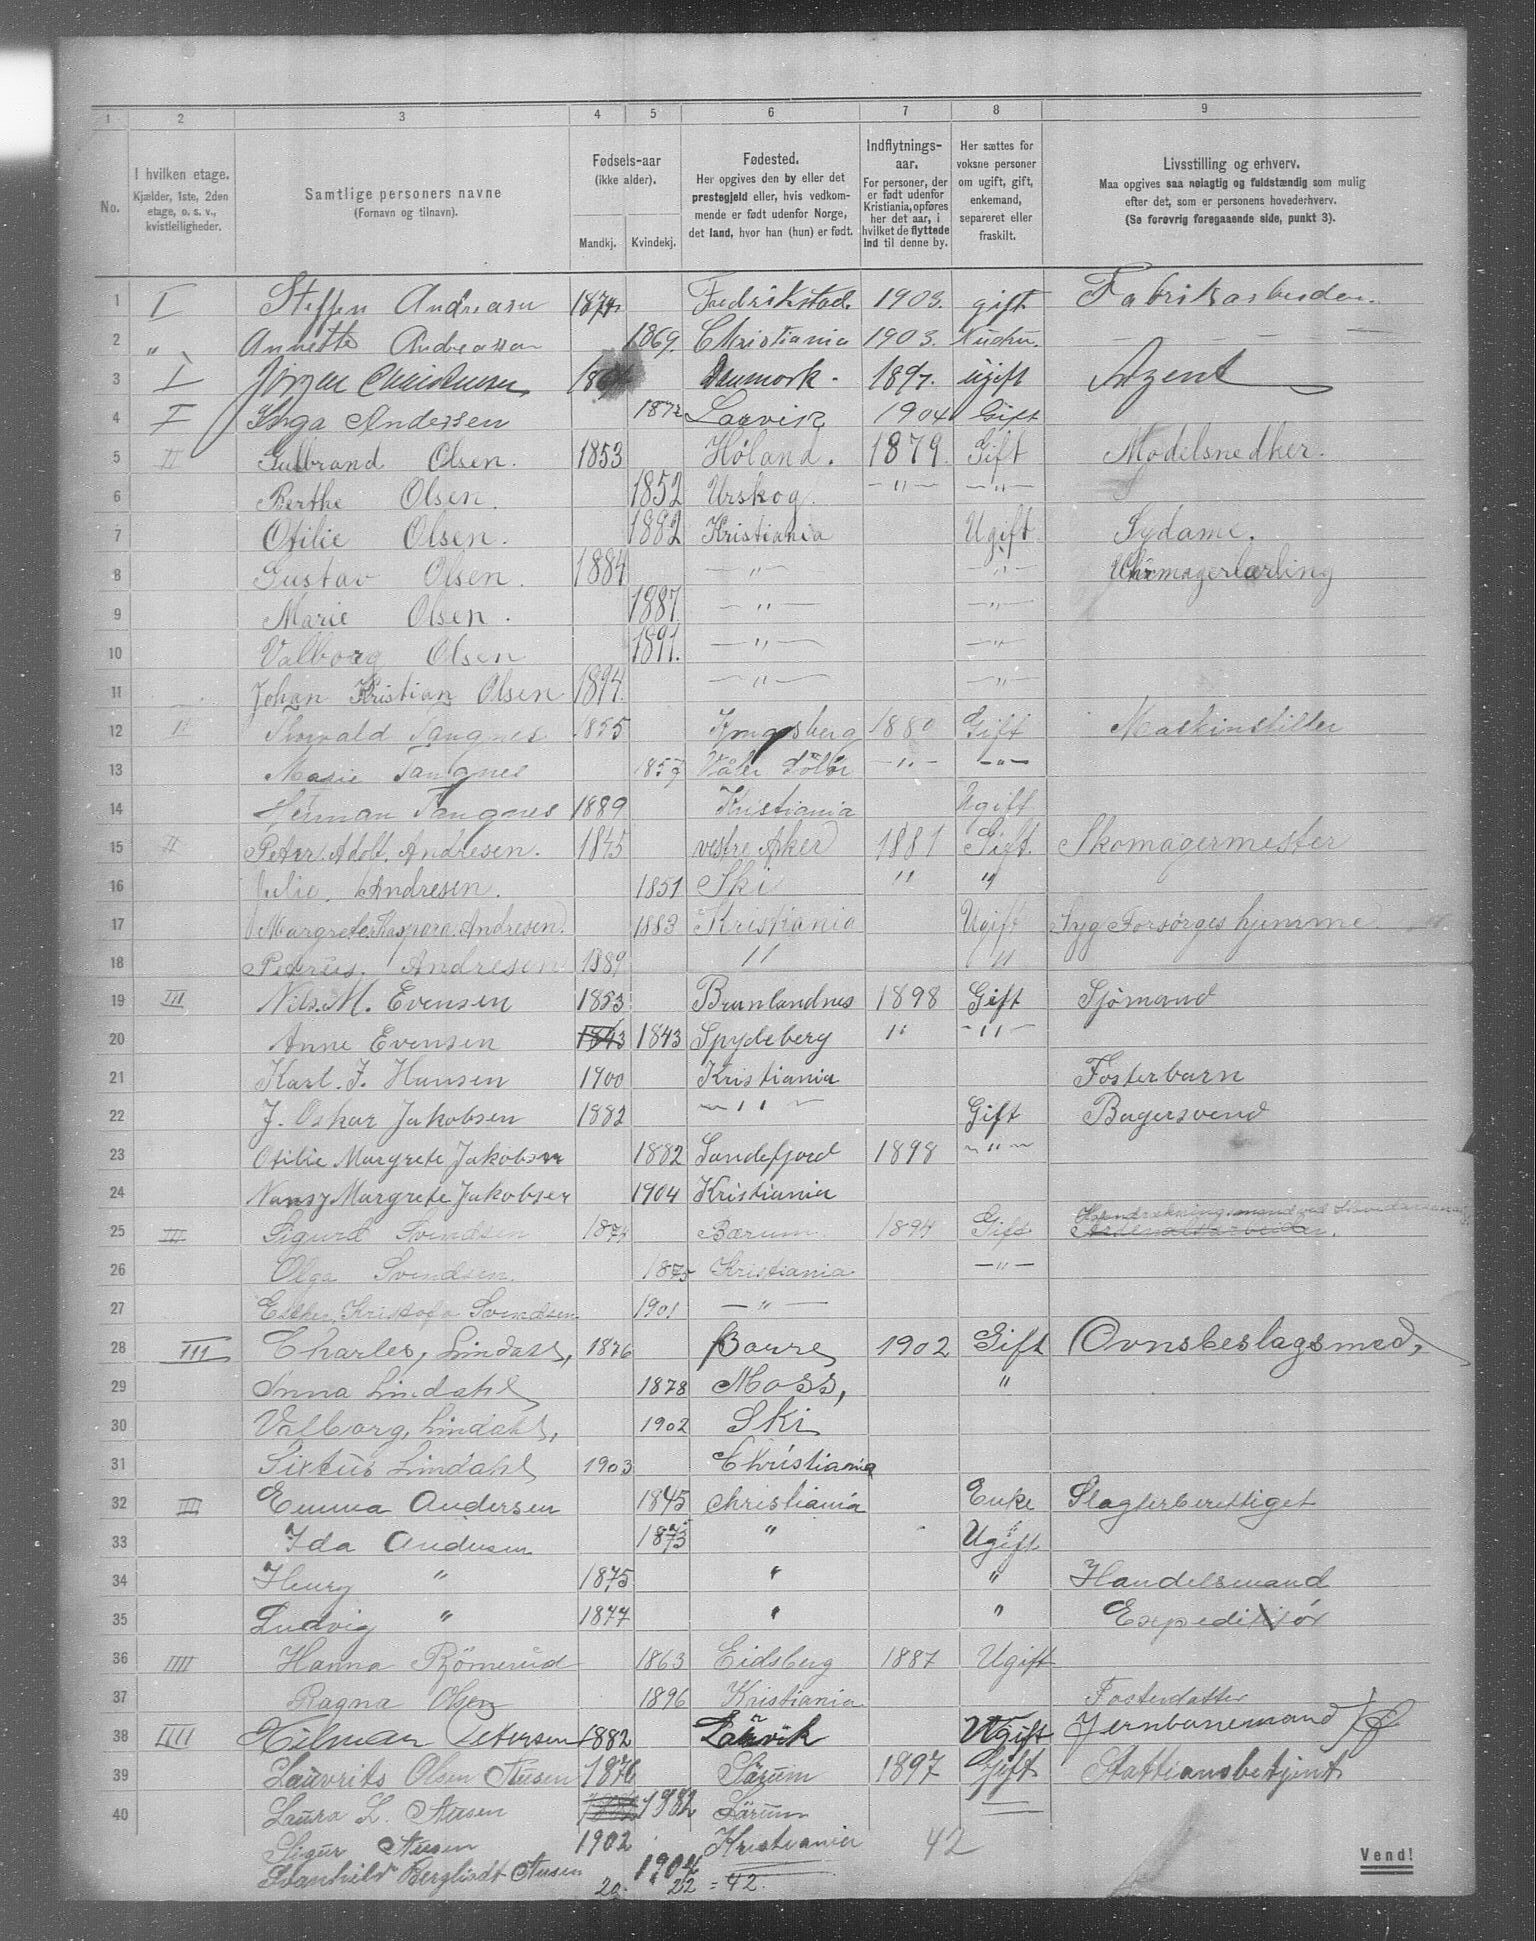 1 2 3 4 5 6 7 8 9
No.
I hvilken etage.
Kjælder, 1ste, 2den
etage, o. s. v.,
kvistleiligheder.
Samtlige personers navne
(Fornavn og tilnavn).
Fødsels-aar
(ikke alder).
Mandkj. Kvindekj.
Fødested.
Her opgives den by eller det
prestegjeld eller, hvis vedkom-
mende er født udenfor Norge,
det land, hvor han (hun) er født.
Indflytnings-
aar.
For personer, der
er født udenfor
Kristiania, opføres
her det aar, i
hvilket de flyttede
ind til denne by.
Her sættes for
voksne personer
om ugift, gift,
enkemand,
separeret eller
fraskilt.
Livsstilling og erhverv.
Maa opgives saa nøiagtig og fuldstændig som mulig
efter det, som er personens hovederhverv.
(Se forøvrig foregaaende side, punkt 3).
1 I Steffen Andreasen 1874 Fredrikstad 1903. gift Fabriksarbeider.
2 " Annette Andreassen 1869. Christiania 1903.
3 I Jørgen Danmark. 1897. ugift Agent
4 I Inga Andersen 1872 Larvik 1904 Gift
5 II Gulbrand Olsen. 1853 Høland. 1879. Gift Modelsnedker.
6 Berthe Olsen. 1852 Urskog. — " — — " —
7 Otilie Olsen. 1882 Kristiania Ugift Sydame.
8 Gustav Olsen. 1884 — " — — " — Uhrmagerlærling
9 Marie Olsen. 1887. — " — — " —
10 Valborg Olsen 1891. — " — — " —
11 Johan Kristian Olsen 1894. — " — — " —
12 II Thorvald Tangnes 1855 Kongsberg 1880 Gift Maskinstiller
13 Marie Tangnes 1857 Våler Solør — " — — " —
14 Herman Tangnes 1889 Kristiania Ugift
15 II Peter Adolf. Andresen. 1845 vestre Aker 1881 Gift. Skomagermester
16 Julie. Andresen. 1851 Ski " "
17 Margrete Kaspara Andresen. 1883 Kristiania Ugift Syg Forsørges hjemme.
18 Petrus. Andresen 1889 " "
19 III Nils. M. Evensen 1853 Brunlandnes 1898 Gift Sjømand
20 Anne Evensen 1843 1843 Spydeberg " — " —
21 Karl. J. Hansen 1900 Kristiania Fosterbarn
22 J. Oskar Jakobsen 1882 — " — Gift Bagersvend
23 Otilie Margrete Jakobsen 1882 Sandefjord 1898 — " —
24 Nansy Margrete Jakobsen 1904 Kristiania
25 III Sigurd Svendsen 1874 Bærum. 1894 Gift
26 Olga Svendsen. 1875 Kristiania — " —
27 Esther Kristofa Svendsen 1901 — " —
28 III Charles, Lindahl, 1876 Borre, 1902 Gift Ovnsbeslagsmed,
29 Anna Lindahl 1878 Moss, "
30 Valborg, Lindahl, 1902 Ski
31 Sixtus Lindahl 1903 Christiania
32 III Emma Andersen 1845 Christiania Enke Slagterberettiget
33 Ida Andersen 1873 " Ugift
34 Henry " 1875 " " Handelsmand
35 Ludvig " 1877 " " Expeditør
36 IIII Hanna Römerud 1863 Eidsberg 1887 Ugift
37 Ragna Olsen 1896 Kristiania Fosterdatter
38 IIII Hilmar Petersen 1882 Larvik Ugift Jernbanemand
39 Lauvrits Olsen Nusen 1876 Sörum 1897 Gift Stattionsbetjent
40 Laura L. Nusen 1882 Sörum
Sigur Nusen 1902 Kristiania 42
Svanhild Berglindt Nusen 1904
20. 22 = 42.
Vend!